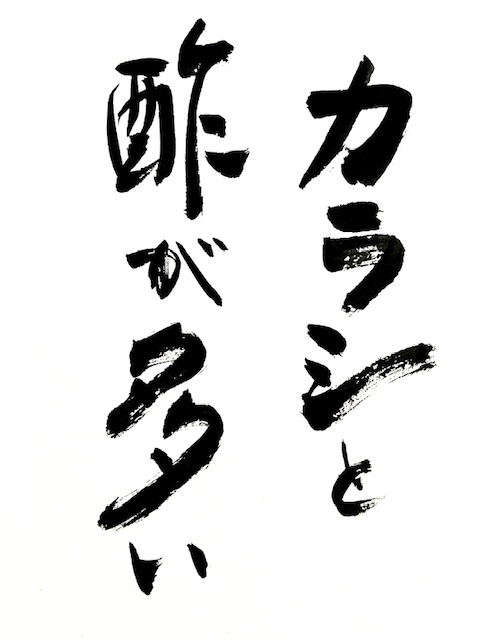 カラシと
酢が多い